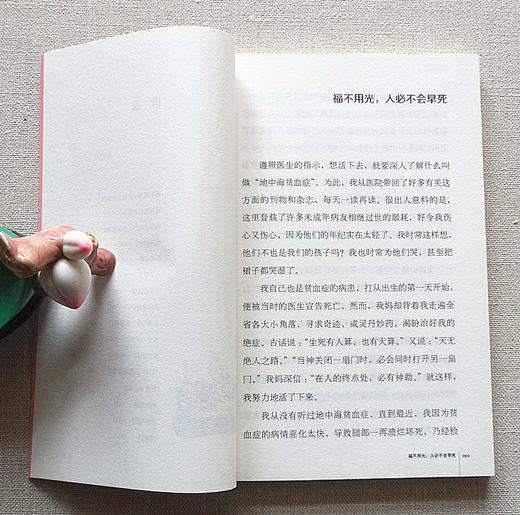 福不用光，人必不会早死
遵照医生的指示，想活下去，就要深入了解什么叫
做“地中海贫血症”。为此，我从医院带回了好多有关这
方面的刊物和杂志，每天一读再读。很出人意料的是，
这里登载了许多未成年病友相继过世的噩耗，好令我伤
心又伤心，因为他们的年纪实在太轻了。我时常这样想，
他们不也是我们的孩子吗？我也时常为他们哭，甚至把
裙子都哭湿了。
我自己也是贫血症的病患，打从出生的第一天开始，
便被当时的医生宣告死亡，然而，我妈却背着我走遍全
省各大小角落，寻求奇迹，或灵丹妙药，渴盼治好我的
绝症。古话说：“生死有人算，也有天算。”又说：“天无
绝人之路。”“当神关闭一扇门时，必会同时打开另一扇
门。”我妈深信：“在人的终点处，必有神助。”就这样，
我努力地活了下来。
我从没有听过地中海贫血症，直到最近，我因为贫
血症的病情恶化太快，导致腿部一再溃烂坏死，乃经检
福不用光，人必不会早死